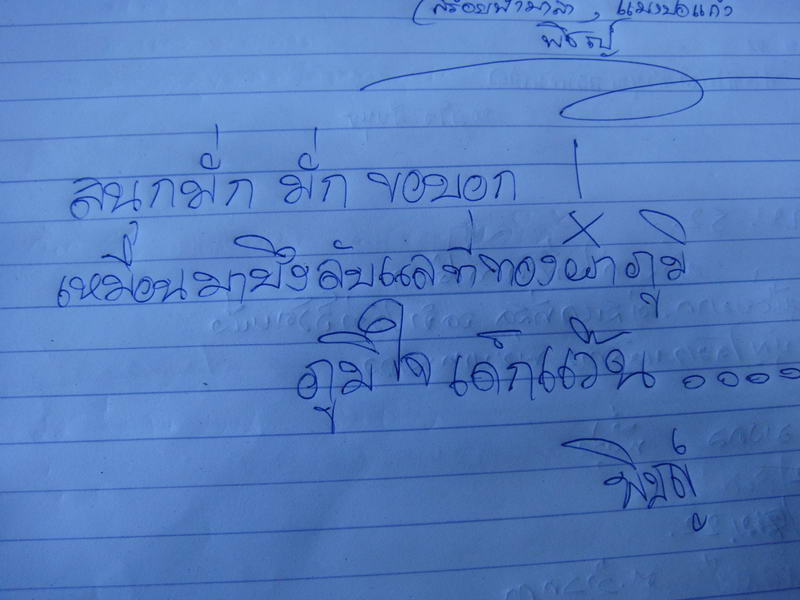 สร้อยฟ้ามาลา, แมงปอแก้ว
สนุกมั่ก มั่ก ขอบอก !
เหมือนมาบึงลับแลที่ทองผาภูมิ
ภูมิใจ เด็กแว๊น ....